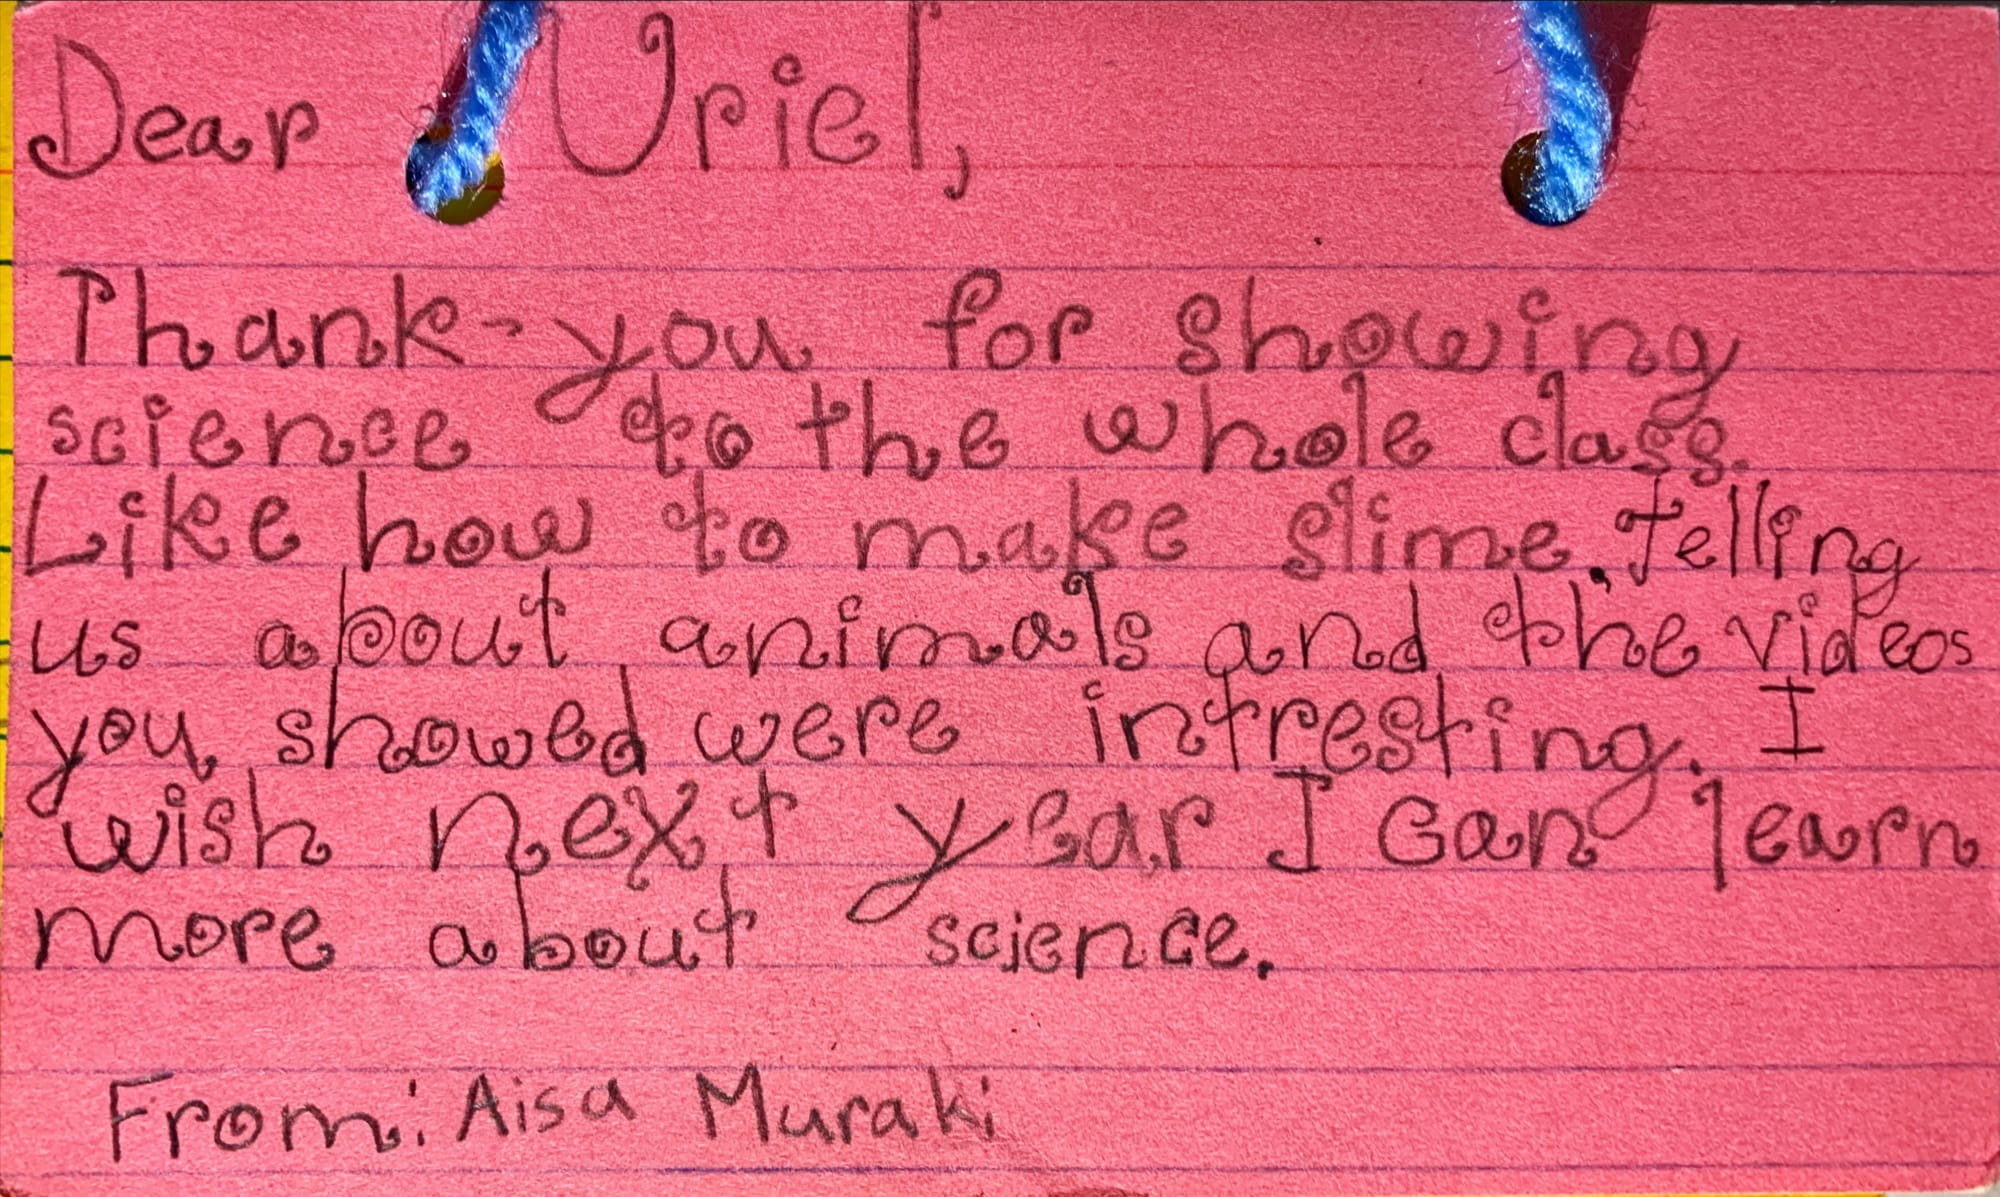 Dear Uriel,
Thank-you for showing
science to the whole class.
Like how to make slime. Telling
us about animals and the videos
you showed were intresting. I
wish next year I can learn
more about science.
From: Aisa Muraki